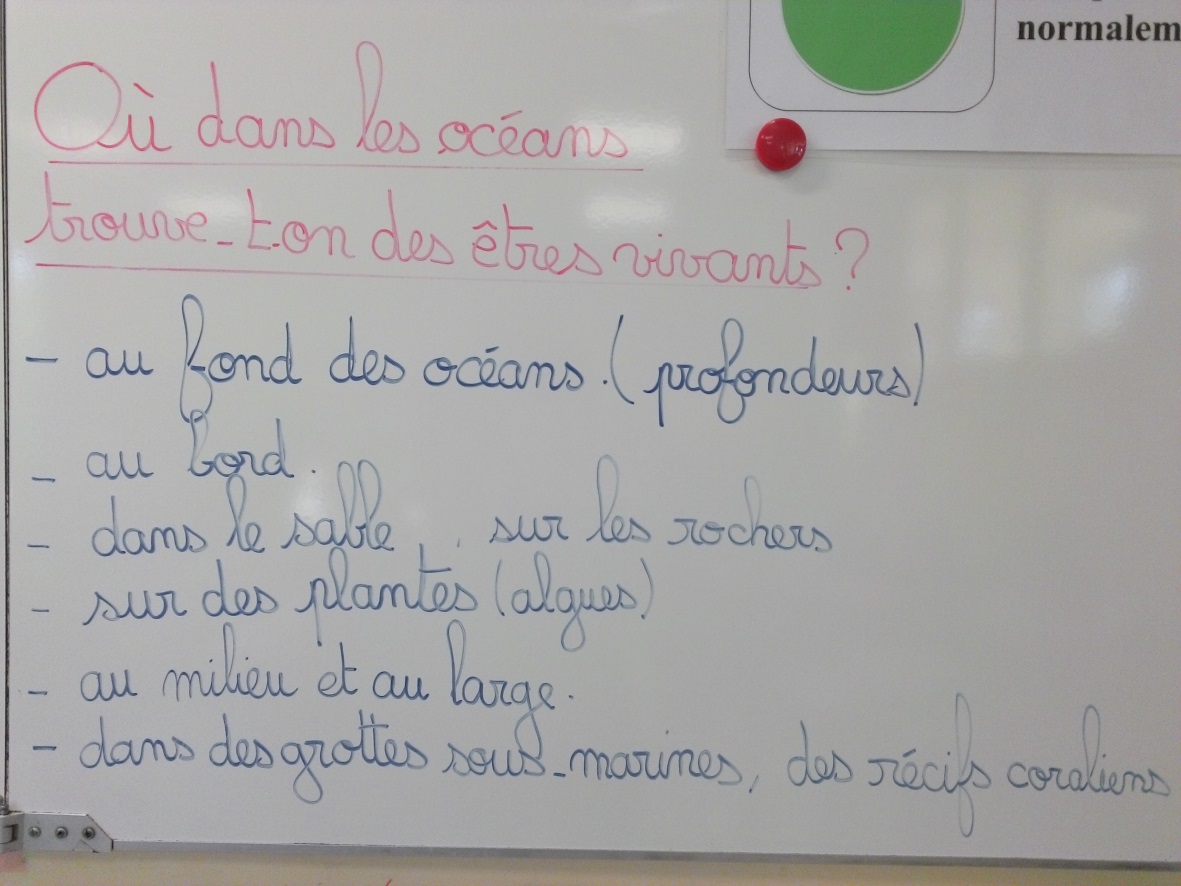 normalem
Où dans les océans
trouve-t-on des êtres vivants ?
- au fond des océans. (profondeurs)
- au bord.
- dans le sable, . sur les rochers
- sur des plantes (algues)
- au milieu et au large.
- dans des grottes sous-marines, des récifs coraliens